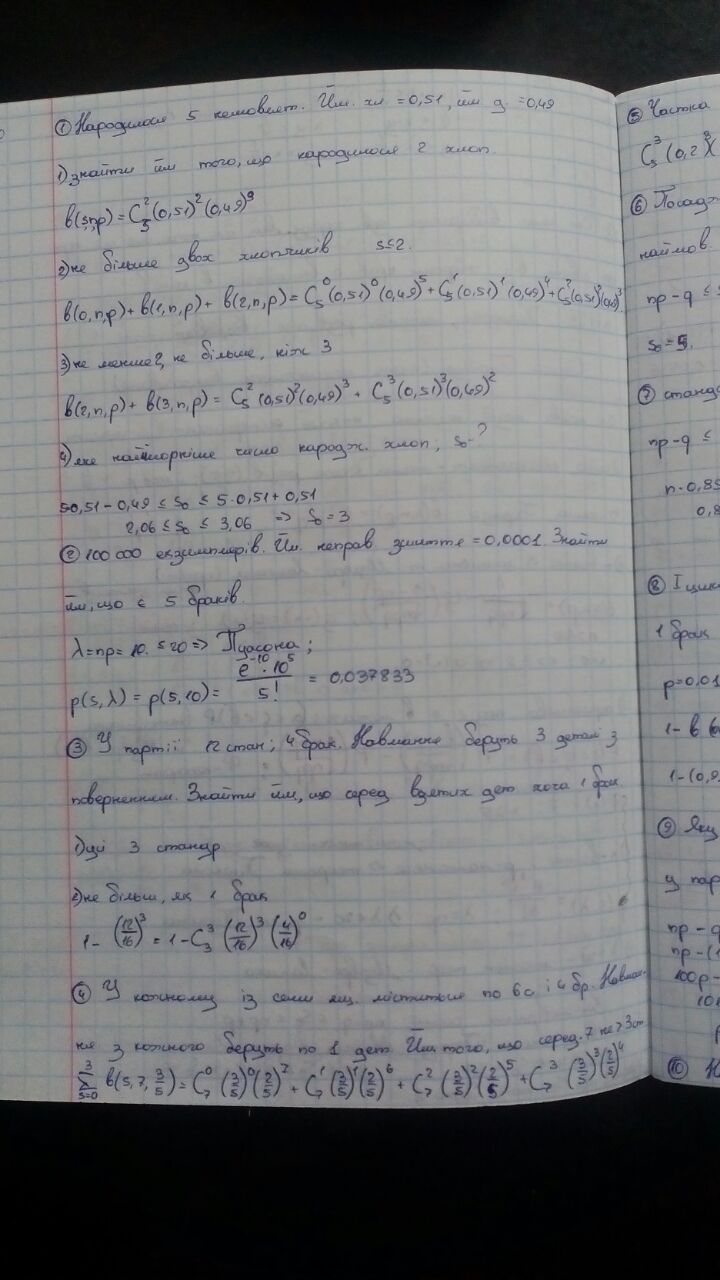 ① Народилося 5 немовлят. Йм. хл = 0,51, йм д. = 0,49
1) знайти йм того, що народилося 2 хлоп.
b(s,n,p) = C₅²(0,51)²(0,49)³
2) не більше двох хлопчиків s≤2.
b(0,n,p) + b(1,n,p) + b(2,n,p) = C₅⁰(0,51)⁰(0,49)⁵ + C₅¹(0,51)¹(0,49)⁴ + C₅²(0,51)²(0,49)³.
3) не менше 2, не більше, ніж 3
b(2,n,p) + b(3,n,p) = C₅²(0,51)²(0,49)³ + C₅³(0,51)³(0,49)²
4) яке найіморніше число народж. хлоп, s₀-?
5·0,51 - 0,49 ≤ s₀ ≤ 5·0,51 + 0,51
2,06 ≤ s₀ ≤ 3,06 => s₀ = 3
② 100 000 екземплярів. Йм. неправ зшиття = 0,0001. Знайти
йм, що є 5 браків.
λ = np = 10. ≤ 20 => Пуасона;
p(s,λ) = p(5,10) = e⁻¹⁰·10⁵ / 5! = 0,037833
③ У партії 12 стан; 4 брак. Навмання беруть 3 деталі з
поверненням. Знайти йм, що серед взятих дет хоча 1 брак.
1) усі 3 стандар
2) не більш, як 1 брак
1 - (12/16)³ = 1 - C₃³ (12/16)³ (4/16)⁰
④ У кожному із семи ящ. міститься по 6с і 4 бр. Навман-
ня з кожного беруть по 1 дет. Йм. того, що серед. 7 не > 3 ст
∑³ₛ₌₀ b(s, 7, 3/5) = C₇⁰ (3/5)⁰(2/5)⁷ + C₇¹ (3/5)¹(2/5)⁶ + C₇² (3/5)²(2/5)⁵ + C₇³ (3/5)³(2/5)⁴
⑤ Частка
C₅³ (0,2)³(
⑥ Посадж
наймов.
np - q ≤ s
s₀ = 5.
⑦ станда
np - q ≤
n·0,85
0,8
⑧ І цик
1 брак
p = 0,01
1 - b
1 - (0,9
⑨ Яку
у пар
np - q
np - (1
100p -
101
⑩ Н